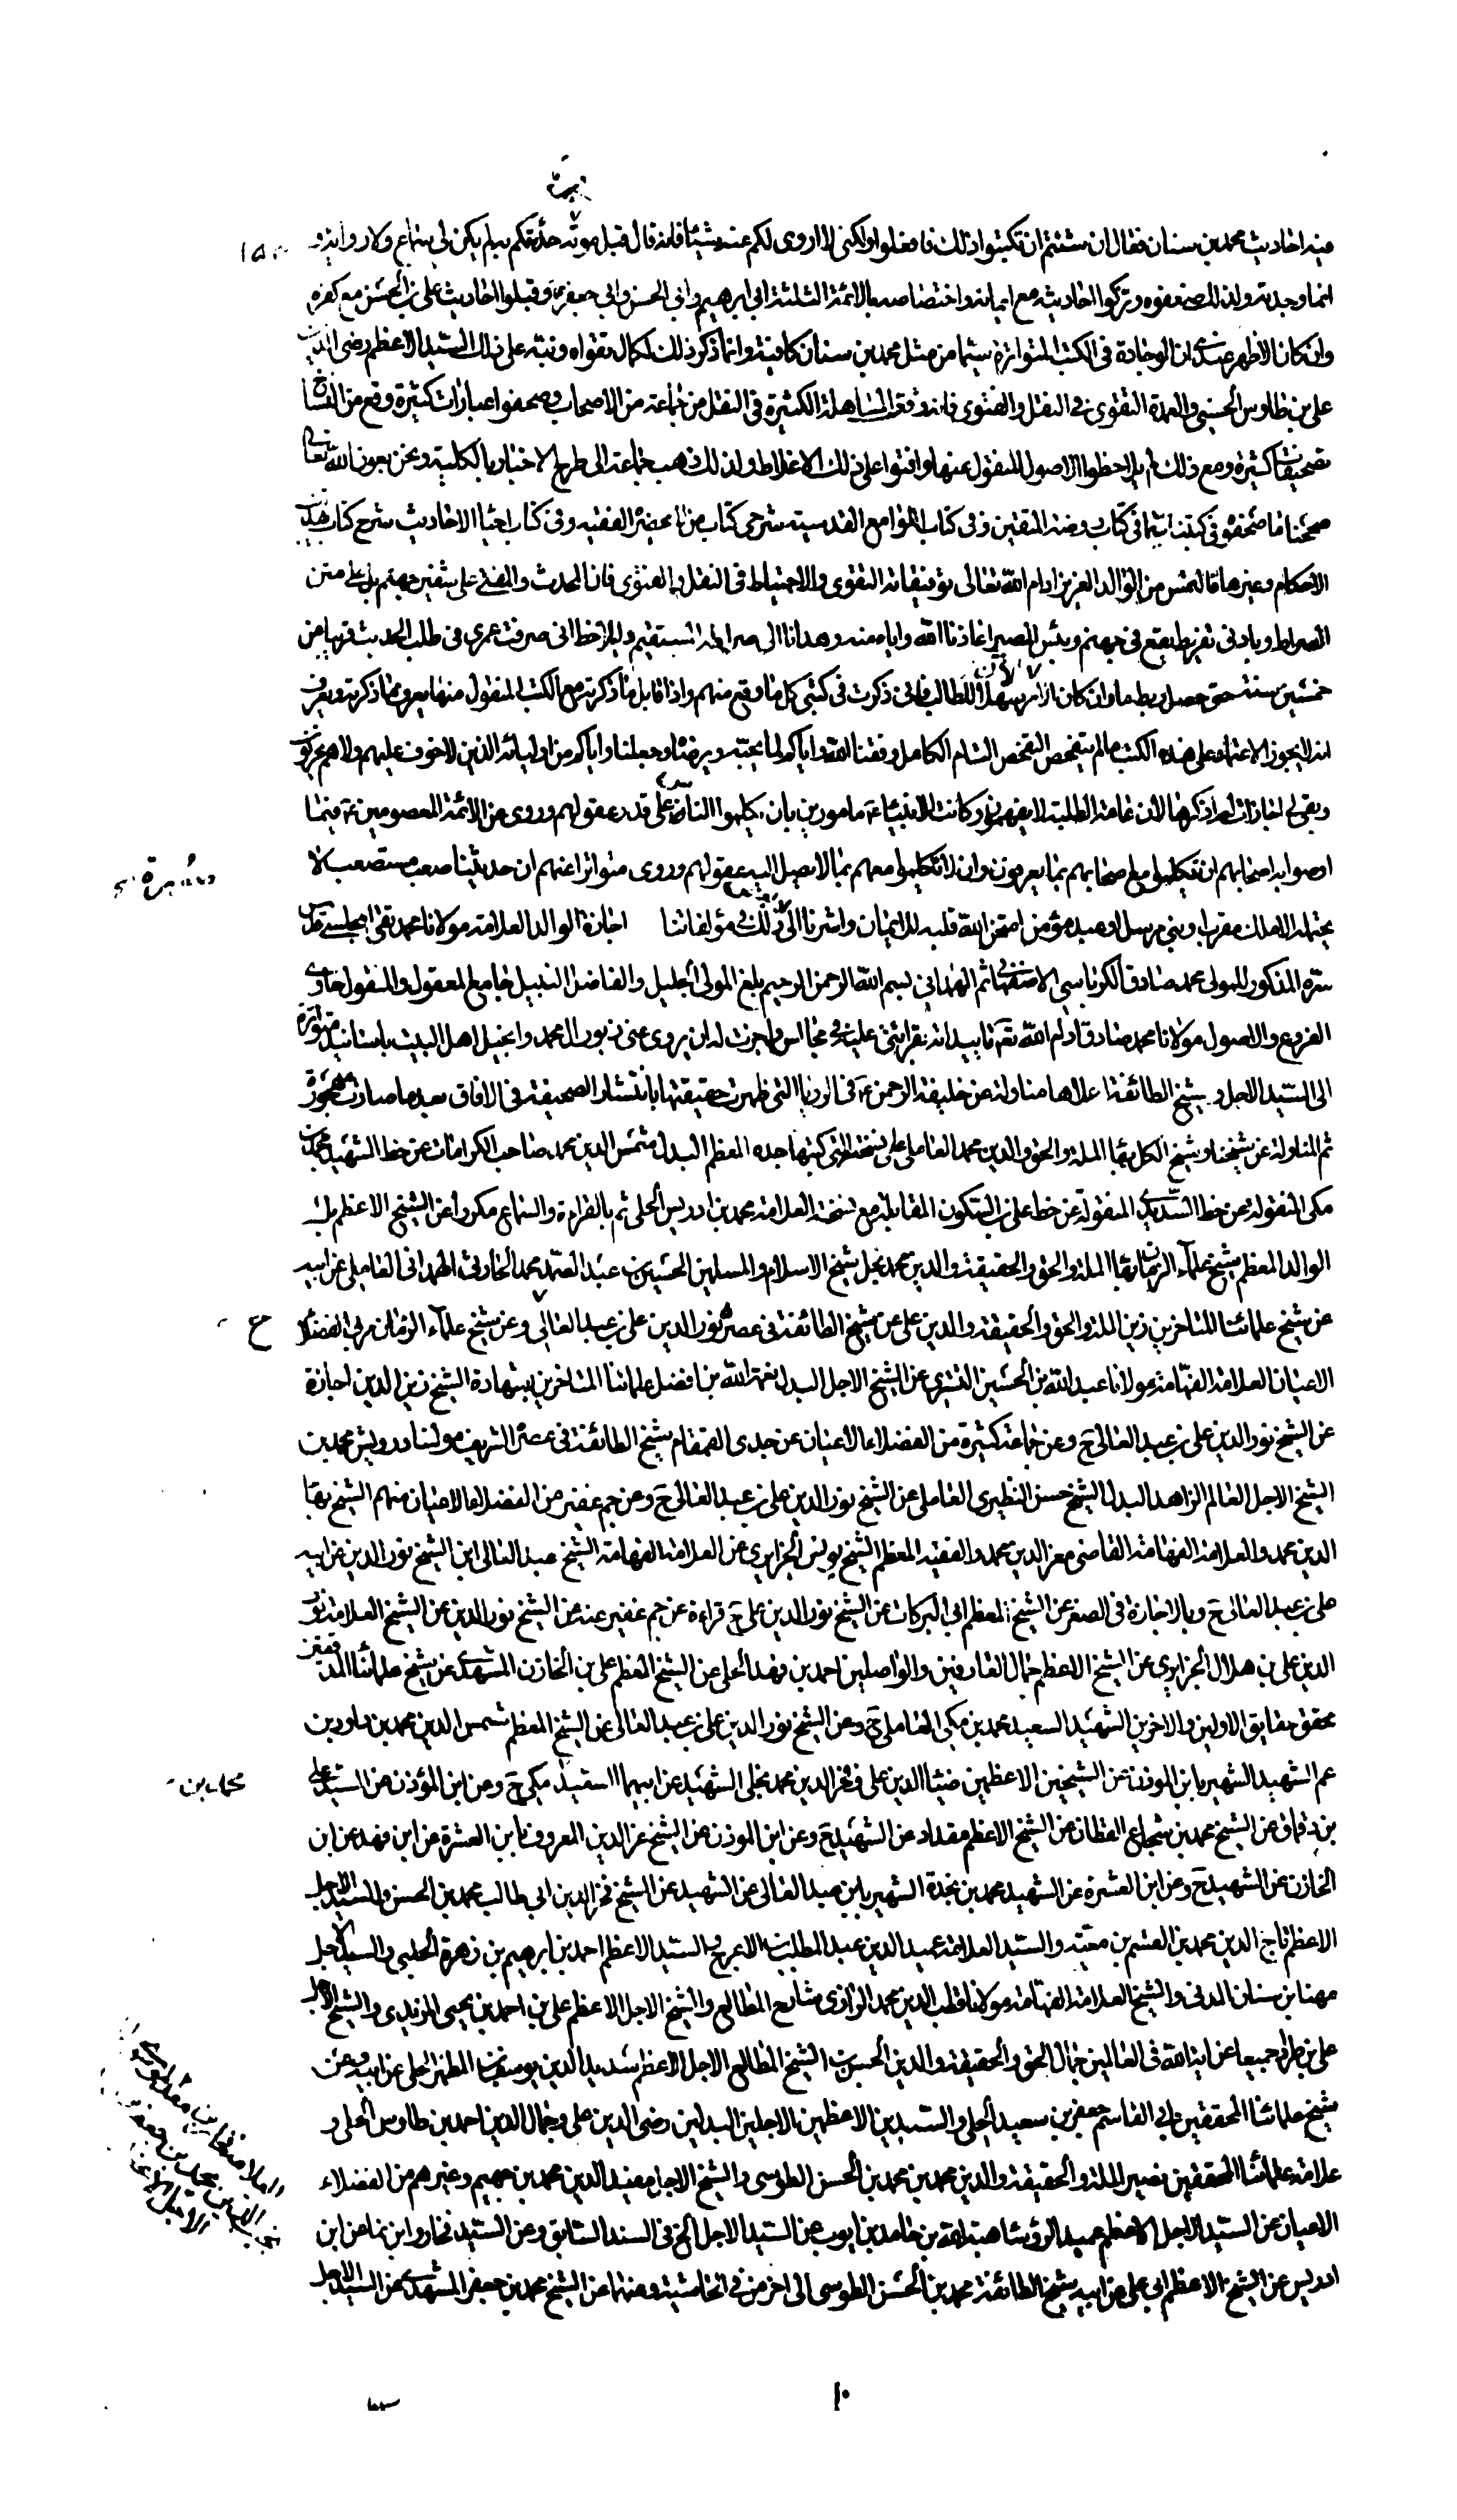 فيه احاديث محمد بن سنان فقال ان شئتم ان تكتبوا ذلك فافعلوا ولكني لا اروى لكم عنه شيئا فانه قال قبل موته حدثتكم به لم يكن لي سماع ولا رواية و
انما وجدته ولذلك ضعفوه وتركوا احاديثه مع ايمانه واختصاصه بالائمة الثلثة ابي ابرهيم وابي الحسن وابي جعفر ع وقبلوا احاديث على بن الحسن مع كفره
وان كان الاظهر عندى ان الوجادة في الكتب المتواترة سيما من مثل محمد بن سنان كافية وانما ذكر ذلك لكمال تقواه ونبه على ذلك السيد الاعظم رضى الدين
على بن طاوس الحسنى والعمدة التقوى في النقل والفتوى فانه وقع المساهلة الكثيرة في النقل من جماعة من الاصحاب وصحفوا عبارات كثيرة وقع من النساخ
تصحيفات كثيرة ومع ذلك لم يلاحظوا الاصول المنقول عنها وافتوا على ذلك الاغلاط ولذلك ذهب جماعة الى طرح الاخبار بالكلية ونحن بعون الله تعالى
صححنا ما صحفوه في كتبنا سيما في كتاب روضة المتقين وفي كتاب اللوامع القدسية شرحى كتاب من لا يحضره الفقيه وفي كتاب احياء الاحاديث شرح كتاب تهذيب
الاحكام وغيرها فالتمس من الوالد العزيز ادام الله تعالى توفيقاته التقوى والاحتياط في النقل والفتوى فان المحدث والمفتى على شفير جهنم بل على متن
الصراط وبادنى تفريط يقع في جهنم وبئس المصير اعاذنا الله واياه منه وهدانا الى صراطه المستقيم وليلاحظ انى صرفت عمرى في طلب الحديث قريبا من
خمسين سنة حتى حصل ربطها وان كان الامر سهلا الان للطالب فانى ذكرت في كتبى كل ما وقع منهم واذا قابل ما ذكرته مع الكتب المنقول منها يعرف ما ذكرته ويعرف
انه لا يجوز الاعتماد على هذه الكتب ما لم يتفحص التفحص التام الكامل وفقنا الله واياكم لما يحبه ويرضاه وجعلنا واياكم من اوليائه الذين لا خوف عليهم ولا هم يحزنون
وبقى لى اجازات لم اذكرها لان عامة الطلبة لا يفهمونها وكانت الانبياء ع مامورين بان يكلموا الناس على قدر عقولهم وروى عن الائمة المعصومين ع فيما
اوصوا به اصحابهم ان تكلموا مع اصحابهم بما يعرفون وان لا تكلموا معهم بما لا يصل اليه عقولهم وروى متواترا عنهم ان حديثنا صعب مستصعب لا
يحتمله الا ملك مقرب او نبى مرسل او عبد مؤمن امتحن الله قلبه للايمان واشرنا الى ذلك في مؤلفاتنا اجازة الوالد العلامة مولانا محمد تقى المجلسى قدس
سره المذكور للمولى محمد صادق الكرباسى الاصفهانى ثم الهمدانى بسم الله الرحمن الرحيم بلغ المولى الجليل والفاضل النبيل جامع المعقول والمنقول حاوى
الفروع والاصول مولانا محمد صادق ادام الله تع تاييداته بقرائتى عليه في مجالس واجزت له ان يروى عنى زبور ال محمد وانجيل اهل البيت باسانيد متواترة
الى السيد الاجل وشيخ الطائفة اعلاها مناولة عن خليفة الرحمن ع في الرويا التى ظهرت حقيقتها بانتشار الصحيفة في الافاق بعد ما صارت مهجورة
ثم المناولة عن شيخنا وشيخ الكل بهاء الملة والحق والدين محمد العاملى على نسخة التى كتبها جده المعظم البدل شمس الدين محمد صاحب الكرامات عن خط الشهيد محمد بن
مكى المنقولة عن خط السديد المنقولة عن خط على بن السكون المقابلة مع نسخة العلامة محمد بن ادريس الحلى ثم بالقراءة والسماع مكررا عن الشيخ الاعظم بل
الوالد المعظم شيخ علماء الزمان بهاء الملة والحق والحقيقة والدين محمد نجل شيخ الاسلام والمسلمين الحسين بن عبد الصمد محمد الحارثى الهمدانى العاملى عن ابيه
عن شيخ علمائنا المتاخرين زين الملة والحق والحقيقة والدين على عن شيخ الطائفة في عصره نور الدين على بن عبد العالى وعن شيخ علماء الزمان مربى الفضلاء
الاعيان العلامة الفهامة مولانا عبد الله بن الحسين التسترى عن الشيخ الاجل البدل نعمة الله بن افضل علمائنا المتاخرين بشهادة الشيخ زين الدين اجازة
عن الشيخ نور الدين على بن عبد العالى ح وعن جماعة كثيرة من الفضلاء الاعيان عن جدى القمقام شيخ الطائفة في عصره الشريف مولينا درويش محمد بن
الشيخ الاجل العالم الزاهد البدل الشيخ حسن النطيرى العاملى عن الشيخ نور الدين على بن عبد العالى ح وعن جم غفير من الفضلاء الاعيان منهم الشيخ بهاء
الدين محمد والعلامة الفهامة القاضى معز الدين محمد والفقيه المعظم الشيخ يونس الجزايرى عن العلامة الفهامة الشيخ عبد العالى ابن الشيخ نور الدين عن ابيه
على بن عبد العالى ح وبالاجازة في الصغر عن الشيخ المعظم ابى البركات عن الشيخ نور الدين على ح قراءة عن جم غفير عنه عن الشيخ نور الدين عن الشيخ العلامة نور
الدين على بن هلال الجزايرى عن الشيخ الاعظم جمال العارفين والواصلين احمد بن فهد الحلى عن الشيخ المعظم على بن الخازن المشهدى عن شيخ علمائنا المدققين
محقق حقايق الاولين والاخرين الشهيد السعيد محمد بن مكى العاملى ح وعن الشيخ نور الدين على بن عبد العالى عن الشيخ المعظم شمس الدين محمد بن داود بن
عم الشهيد الشهير بابن الموذن عن الشيخين الاعظمين ضياء الدين على وفخر الدين محمد نجلى الشهيد عن ابيهما السعيد مكى ح وعن ابن المؤذن عن السيد على
بن دقماق عن الشيخ محمد بن شجاع القطان عن الشيخ الاعظم مقداد عن الشهيد ح وعن ابن الموذن عن الشيخ عز الدين المعروف بابن العشرة عن ابن فهد عن ابن
الخازن عن الشهيد ح وعن ابن العشرة عن الشهيد محمد بن نجدة الشهير بابن عبد العالى عن الشهيد عن الشيخ فخر الدين ابى طالب محمد بن الحسن والسيد الاجل
الاعظم تاج الدين محمد بن القسم بن معية والسيد العلامة عميد الدين عبد المطلب بن الاعرج والسيد الاعظم احمد بن ابرهيم بن زهرة الحلبى والسيد الاجل
مهنا بن سنان المدنى والشيخ العلامة الفهامة مولانا قطب الدين محمد الرازى شارح المطالع والشيخ الاجل الاعظم على بن احمد بن يحيى المزيدى والشيخ الاجل
على بن طراد جميعا عن اية الله في العالمين جمال الحق والحقيقة والدين الحسن بن الشيخ المطالع الاجل الاعظم سديد الدين يوسف بن المطهر الحلى عن ابيه وعن
شيخ علمائنا المحققين ابى القاسم جعفر بن سعيد الحلى والسيدين الاعظمين الاجلين البدلين رضى الدين على وجمال الدين احمد بن طاوس الحلى و
علامة علمائنا المحققين نصير الملة والحقيقة والدين محمد بن محمد بن الحسن الطوسى والشيخ الاجل مفيد الدين محمد بن جهيم وغيرهم من الفضلاء
الاعيان عن السيد الاجل الاعظم عميد الرؤساء هبة الله بن حامد بن ايوب عن السيد الاجل الخ في السند السابق وعن السيد فخار وابن نما عن ابن
ادريس عن الشيخ الاعظم ابى على عن ابيه شيخ الطائفة محمد بن الحسن الطوسى الى اخر من في الحاشية وعنهما عن الشيخ محمد بن جعفر المشهدى عن السيد الاجل
١٠